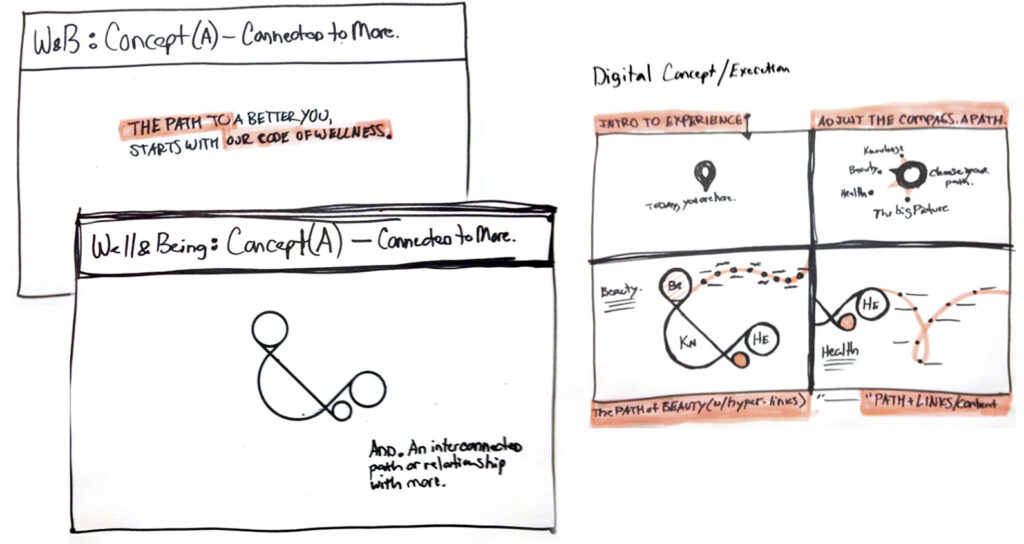 W&B: Concept (A) – Connected to More.
THE PATH TO A BETTER YOU,
STARTS WITH OUR CODE OF WELLNESS.
Well & Being: Concept (A) – Connected to More.
AND. An interconnected
path or relationship
with more.
Digital Concept/Execution
INTRO TO EXPERIENCE
ADJUST THE COMPASS. A PATH.
TODAY, you are here.
Knowledge
Beauty
Health
Choose your
path.
The big Picture
Beauty.
Be
KN
HE
HE
Health
The PATH of BEAUTY (w/hyper-links)
" "PATH + LINKS/Content